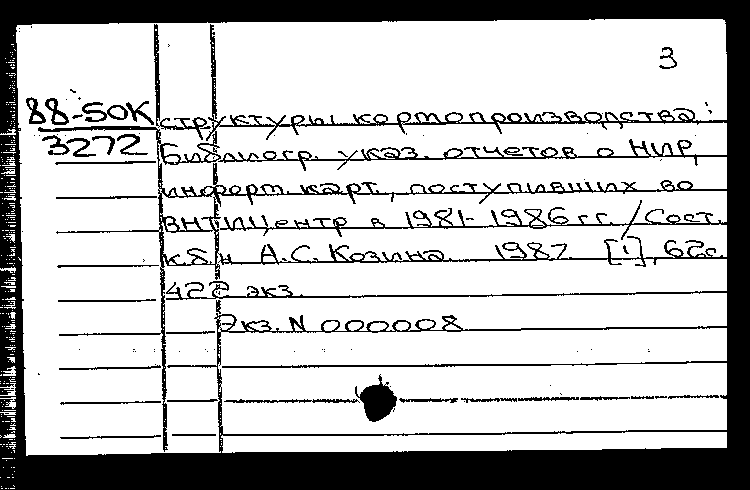 3
88-50К
3272
структуры кормопроизводства:
Библиогр. указ. отчетов о НИР,
информ. карт., поступивших во
ВНТИЦентр в 1981-1986 гг. / Сост.
к.б.н А.С. Козина. 1987 [1], 62с.
422 экз.
Экз. N 000008